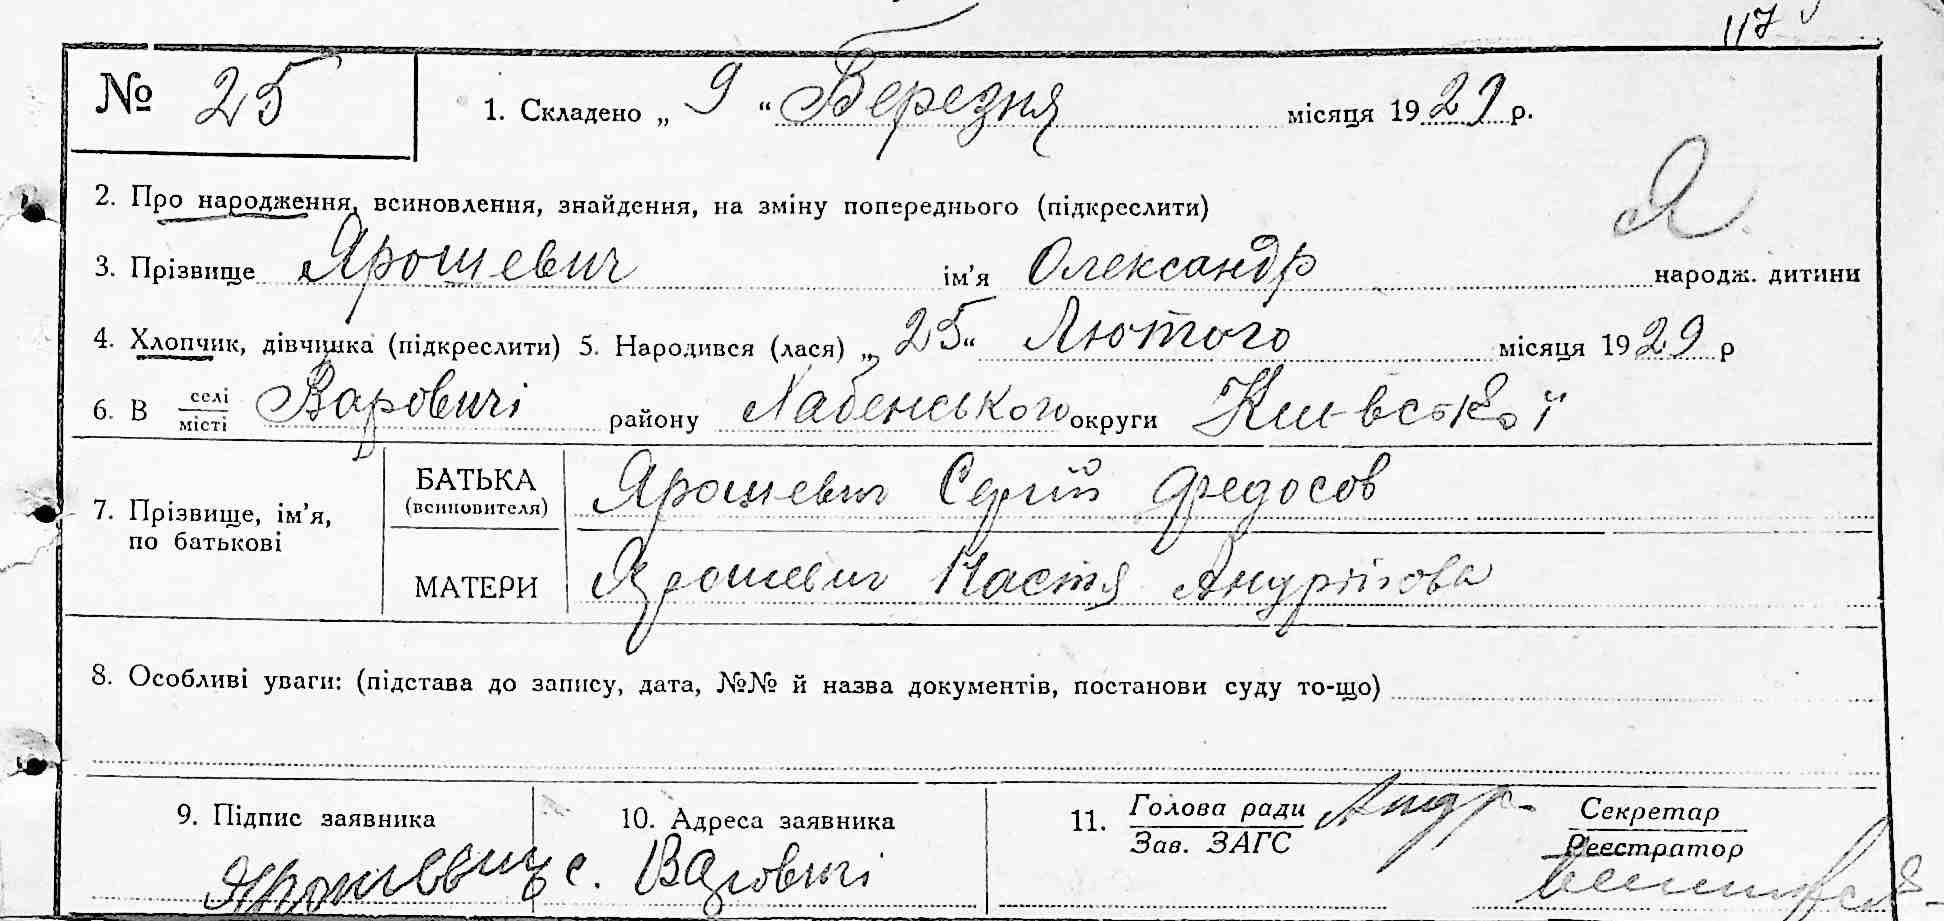 117
№ 25
1. Складено „ 9 “ Березня місяця 1929 р.
2. Про народження, всиновлення, знайдення, на зміну попереднього (підкреслити)
Я
3. Прізвище Ярошевич ім’я Олександр народж. дитини
4. Хлопчик, дівчинка (підкреслити) 5. Народився (лася) „ 25 “ Лютого місяця 1929 р
6. В селі/місті Варовичі району Хабенського округи Київської
7. Прізвище, ім’я, по батькові
БАТЬКА (всиновителя) Ярошевич Сергій Федосов
МАТЕРИ Ярошевич Настя Андріїова
8. Особливі уваги: (підстава до запису, дата, №№ й назва документів, постанови суду то-що)
9. Підпис заявника
Ярошевич
10. Адреса заявника
с. Варовичі
11. Голова ради
Зав. ЗАГС
Секретар
Реєстратор